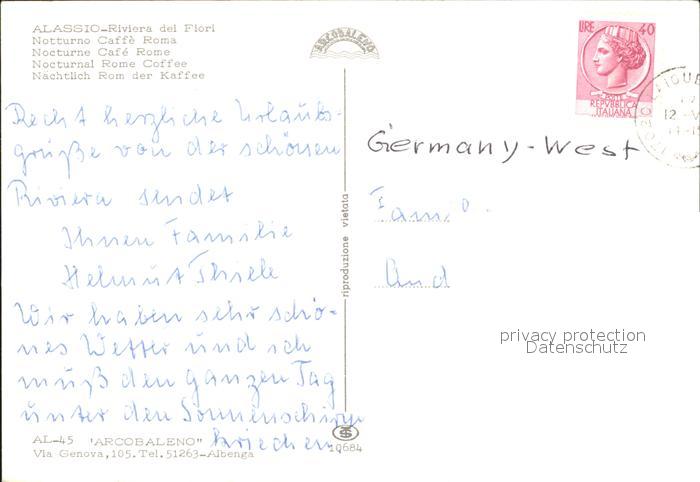 ALASSIO-Riviera dei Fiori
Notturno Caffè Roma
Nocturne Café Rome
Nocturnal Rome Coffee
Nächtlich Rom der Kaffee
Recht herzliche Urlaubs-
grüße von der schönen
Riviera sendet
Ihnen Familie
Helmut Thiele
Wir haben sehr schö-
nes Wetter und ich
muß den ganzen Tag
unter den Sonnenschirm
kriechen.
AL-45 "ARCOBALENO"
Via Genova, 105. Tel. 51263-Albenga
ARCOBALENO
riproduzione vietata
10684
LIRE 40
REPVBBLICA
ITALIANA
LAIGUE
12
Germany-West
Famil
And
privacy protection
Datenschutz